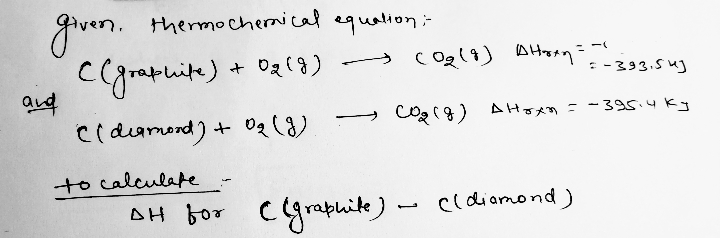 given, thermochemical equation:-
C(graphite) + O2(g) → CO2(g) ΔHrxn = -(
= -393.5 kJ
and
C(diamond) + O2(g) → CO2(g) ΔHrxn = -395.4 KJ
to calculate :-
ΔH for C(graphite) → C(diamond)